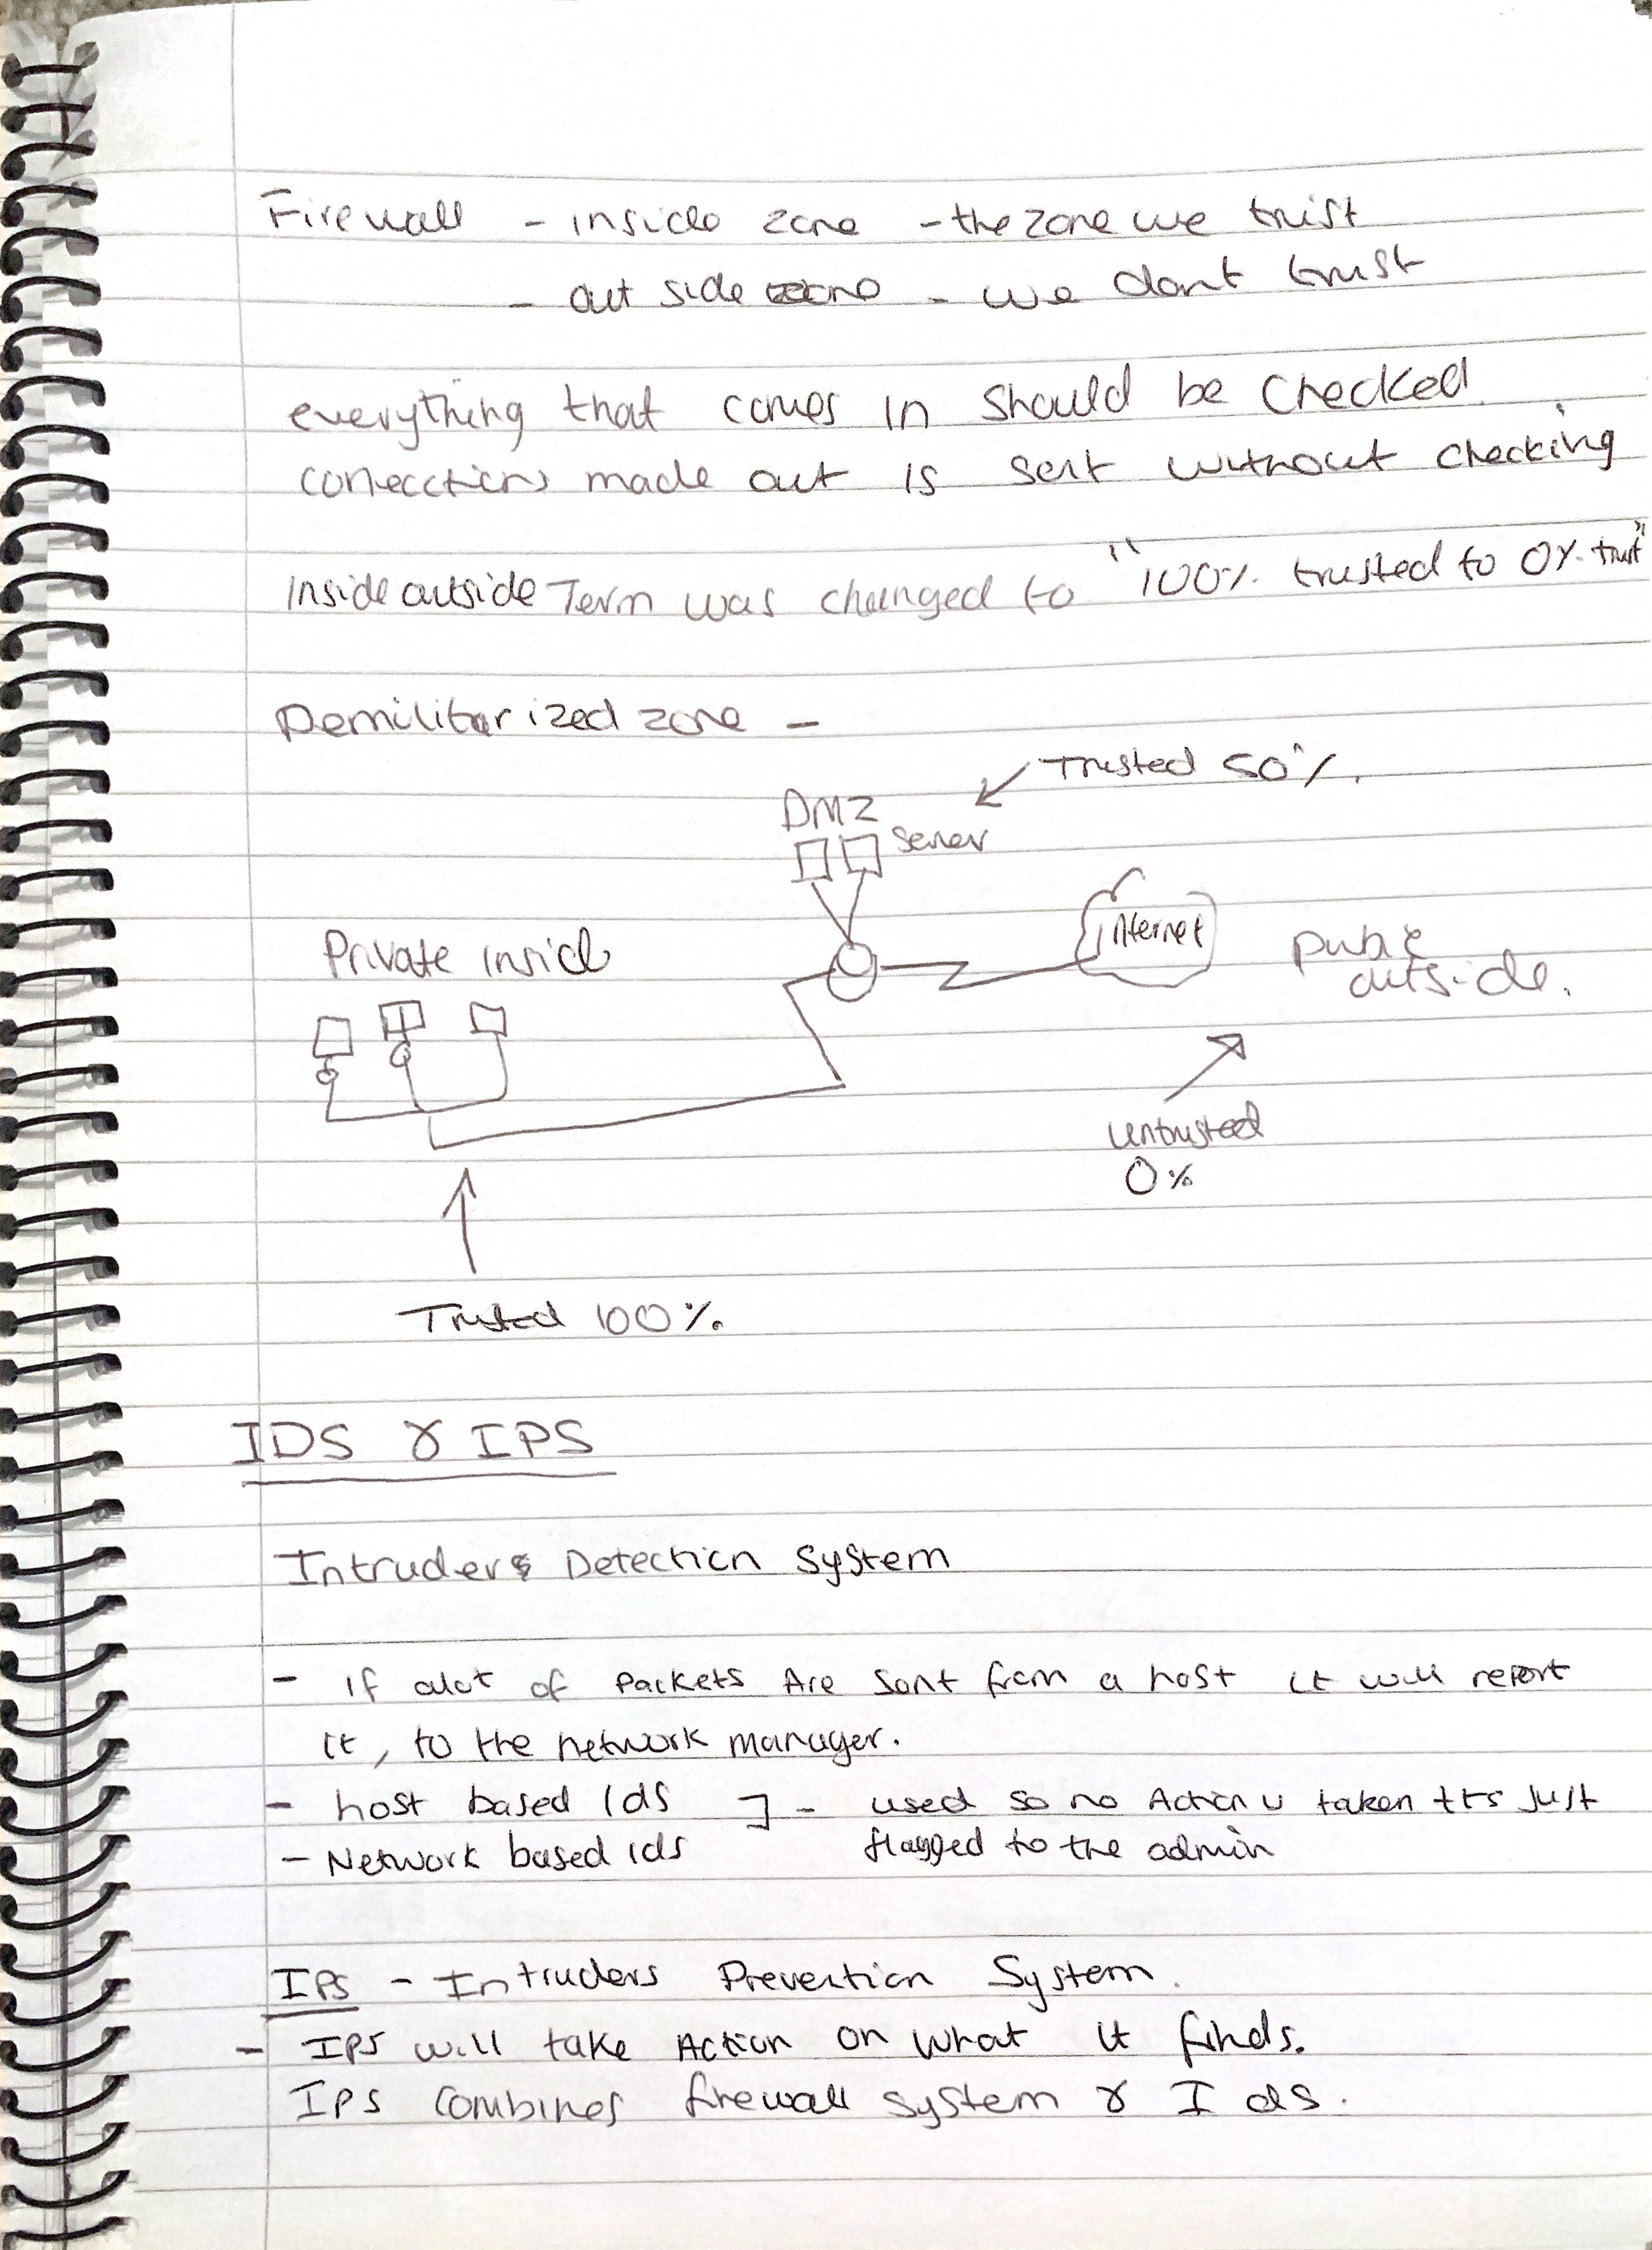 Firewall - inside zone - the zone we trust
- out side zone - we dont trust
everything that comes in should be checked.
connecctions made out is sent without checking
Inside outside Term was changed to "100% trusted to 0% trust"
Demilitarized zone -
Trusted 50%.
DMZ
server
Internet
Private inside
public
outside.
untrusted
0%
Trusted 100%.
IDS & IPS
Intruders Detection System
- If alot of Packets Are sent from a host it will report
it, to the network manager.
- host based Ids ] - used so no Action is taken it's just
- Network based ids flagged to the admin
IPS - Intruders Prevention System.
- IPS will take Action on what it finds.
IPS combines firewall system & I ds.